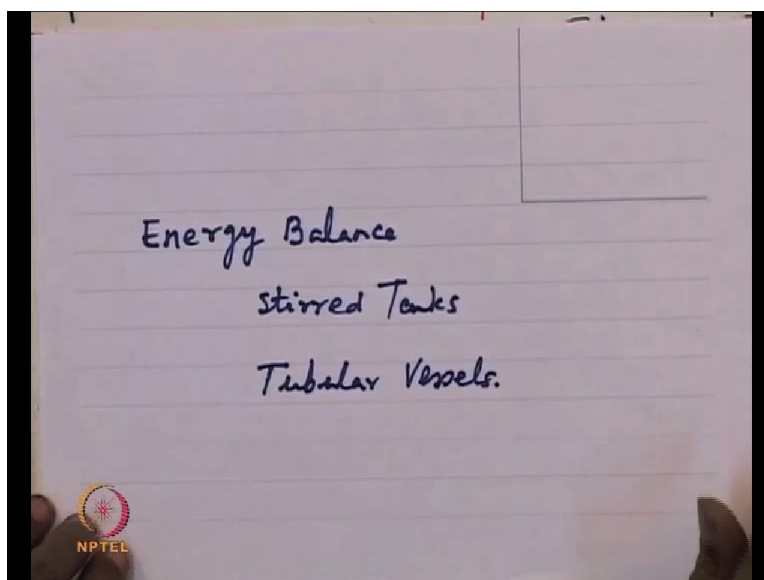 Energy Balance
Stirred Tanks
Tubular Vessels.
NPTEL